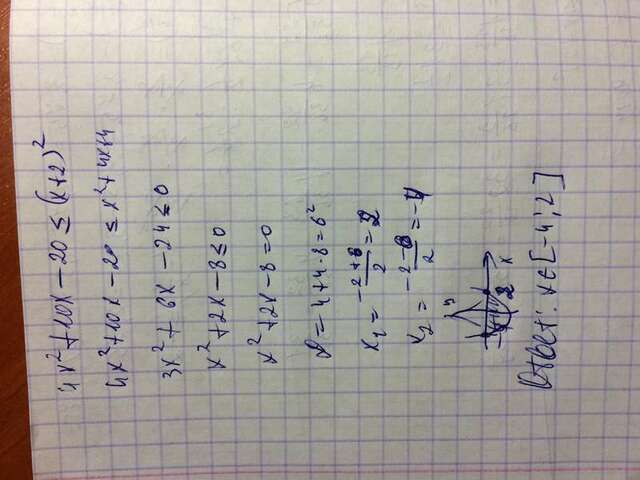 4x² + 10x - 20 ≤ (x+2)²
4x² + 10x - 20 ≤ x² + 4x + 4
3x² + 6x - 24 ≤ 0
x² + 2x - 8 ≤ 0
x² + 2x - 8 = 0
D = 4 + 4·8 = 6²
x₁ = (-2+6)/2 = 2
x₂ = (-2-6)/2 = -4
y
x
2
Ответ: x ∈ [-4; 2]